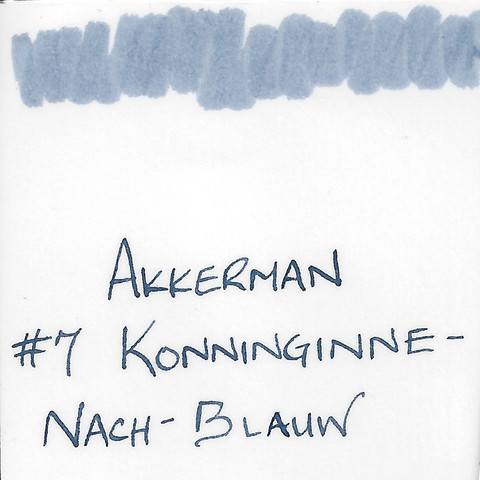 AKKERMAN
#7 KONNINGINNE-
NACH-BLAUW